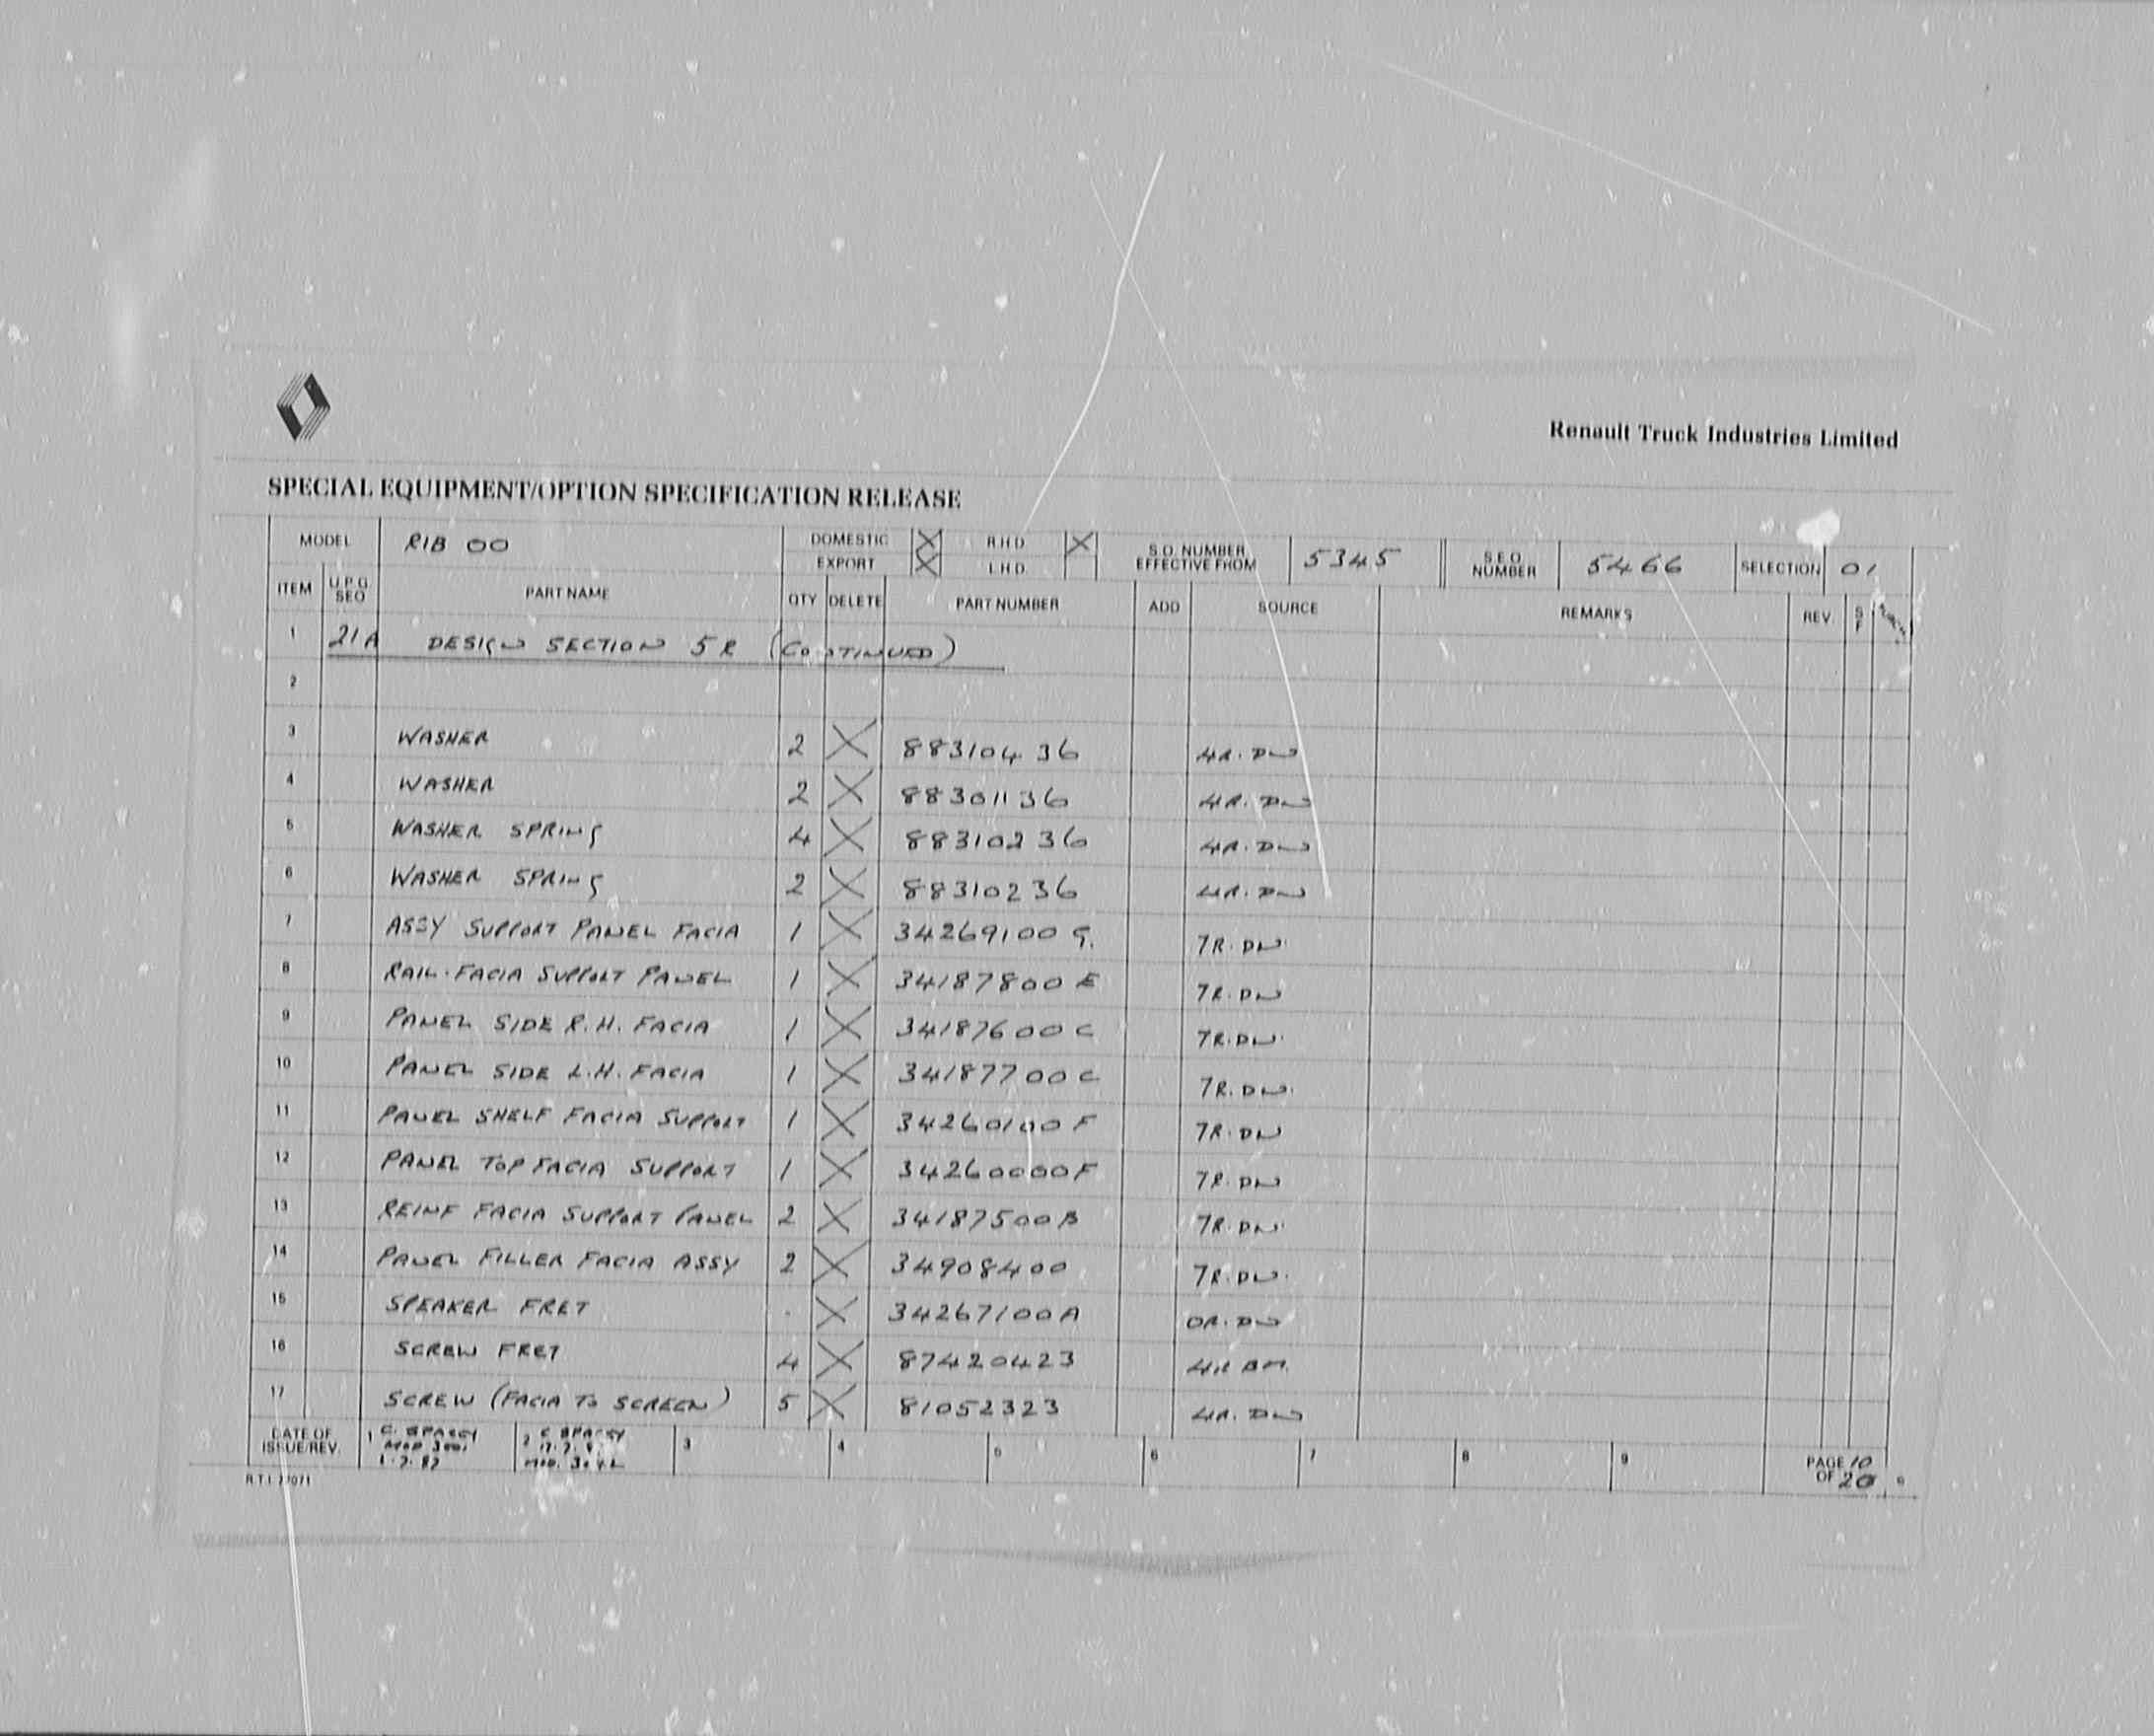 Renault Truck Industries Limited
SPECIAL EQUIPMENT/OPTION SPECIFICATION RELEASE
MODEL R1B 00 DOMESTIC X R.H.D. X S.O. NUMBER EFFECTIVE FROM 5345 S.E.O. NUMBER 5466 SELECTION 01
EXPORT X L.H.D.
ITEM U.P.G. SEQ PART NAME QTY DELETE PART NUMBER ADD SOURCE REMARKS REV.
1 21A DESIGN SECTION 5R (CONTINUED)
2
3 WASHER 2 X 88310436 4R.DW
4 WASHER 2 X 88301136 4R.DW
5 WASHER SPRING 4 X 88310236 4R.DW
6 WASHER SPRING 2 X 88310236 4R.DW
7 ASSY SUPPORT PANEL FACIA 1 X 34269100 G. 7R.DW
8 RAIL.FACIA SUPPORT PANEL 1 X 34187800 E 7R.DW
9 PANEL SIDE R.H. FACIA 1 X 34187600 C 7R.DW.
10 PANEL SIDE L.H. FACIA 1 X 34187700 C 7R.DW.
11 PANEL SHELF FACIA SUPPORT 1 X 34260100 F 7R.DW
12 PANEL TOP FACIA SUPPORT 1 X 34260000F 7R.DW
13 REINF FACIA SUPPORT PANEL 2 X 34187500B 7R.DW.
14 PANEL FILLER FACIA ASSY 2 X 34908400 7R.DW.
15 SPEAKER FRET . X 34267100A 0R.DW
16 SCREW FRET 4 X 87420423 4R
17 SCREW (FACIA TO SCREEN) 5 X 81052323 4R.DW
DATE OF ISSUE/REV. 1 C. 2 C 3 4 5 6 7 8 9 PAGE 10 OF 20